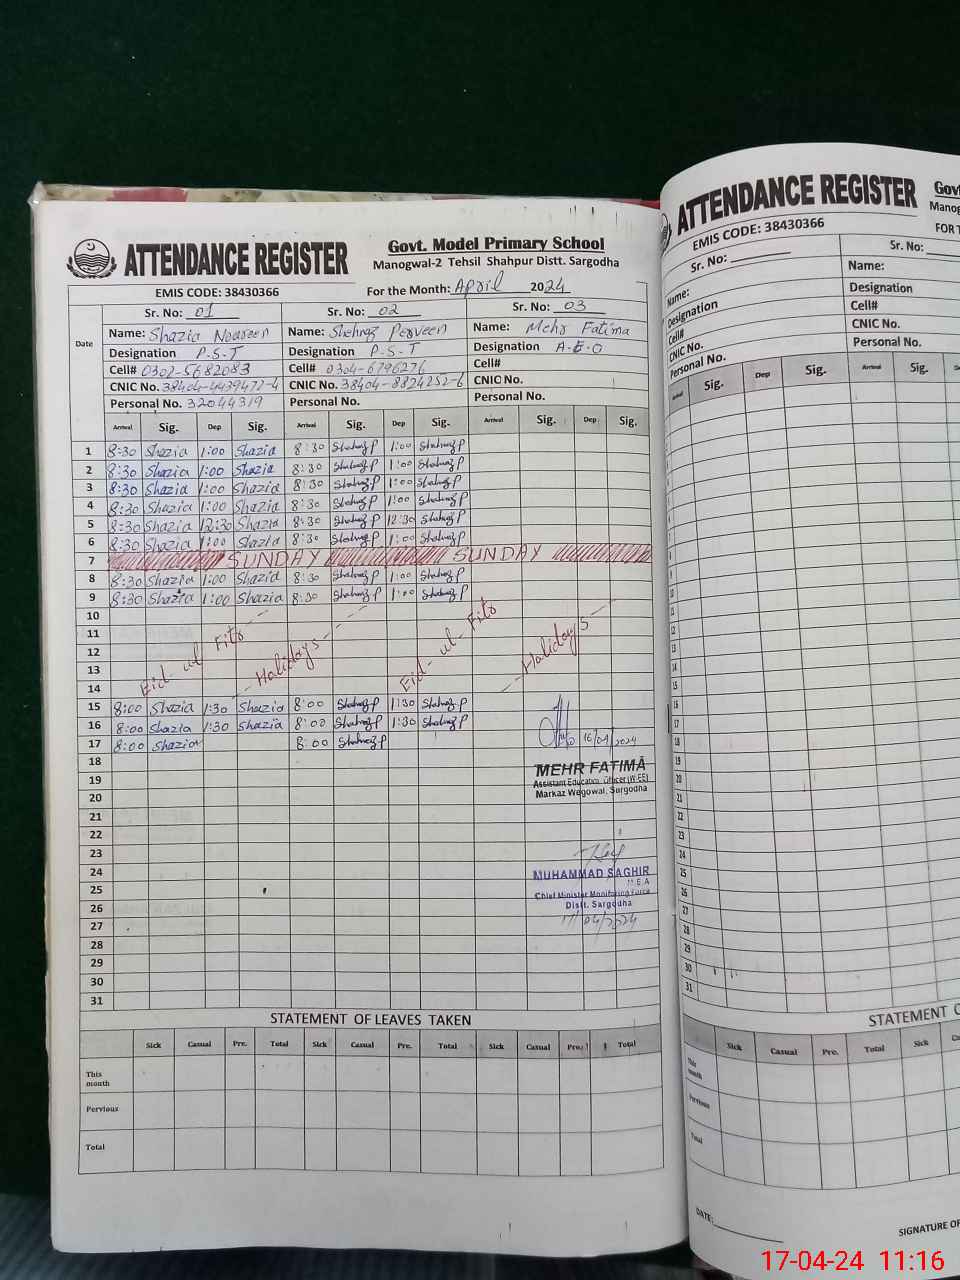 ATTENDANCE REGISTER
Govt. Model Primary School
Manogwal-2 Tehsil Shahpur Distt. Sargodha
EMIS CODE: 38430366
For the Month: April 2024
Date
Sr. No: 01 Sr. No: 02 Sr. No: 03
Name: Shazia Noureen Name: Shehnaz Perveen Name: Mehr Fatima
Designation P.S.T Designation P.S.T Designation A.E.O
Cell# 0302-5682083 Cell# 0304-6796276 Cell#
CNIC No. 38404-4439472-4 CNIC No. 38404-8824252-6 CNIC No.
Personal No. 32044319 Personal No. Personal No.
Arrival Sig. Dep Sig. Arrival Sig. Dep Sig. Arrival Sig. Dep Sig.
1 8:30 Shazia 1:00 Shazia 8:30 Shehnaz P 1:00 Shehnaz P
2 8:30 Shazia 1:00 Shazia 8:30 Shehnaz P 1:00 Shehnaz P
3 8:30 Shazia 1:00 Shazia 8:30 Shehnaz P 1:00 Shehnaz P
4 8:30 Shazia 1:00 Shazia 8:30 Shehnaz P 1:00 Shehnaz P
5 8:30 Shazia 12:30 Shazia 8:30 Shehnaz P 12:30 Shehnaz P
6 8:30 Shazia 1:00 Shazia 8:30 Shehnaz P 1:00 Shehnaz P
7 SUNDAY SUNDAY
8 8:30 Shazia 1:00 Shazia 8:30 Shehnaz P 1:00 Shehnaz P
9 8:30 Shazia 1:00 Shazia 8:30 Shehnaz P 1:00 Shehnaz P
10
11
12
13
14
Eid-ul-Fitr Holidays Eid-ul-Fitr Holidays
15 8:00 Shazia 1:30 Shazia 8:00 Shehnaz P 1:30 Shehnaz P
16 8:00 Shazia 1:30 Shazia 8:00 Shehnaz P 1:30 Shehnaz P
17 8:00 Shazia 8:00 Shehnaz P
16/04/2024
18
MEHR FATIMA
19
Assistant Education Officer (W-EE)
20
Markaz Wegowal, Sargodha
21
22
23
24
MUHAMMAD SAGHIR
25
M.E.A
26
Chief Minister Monitoring Force
Distt. Sargodha
27
17/04/2024
28
29
30
31
STATEMENT OF LEAVES TAKEN
Sick Casual Pre. Total Sick Casual Pre. Total Sick Casual Pre. Total
This month
Pervious
Total
ATTENDANCE REGISTER
EMIS CODE: 38430366
Sr. No: Sr. No:
Name: Name:
Designation Designation
Cell# Cell#
CNIC No. CNIC No.
Personal No. Personal No.
Arrival Sig. Dep Sig. Arrival Sig.
11
12
13
14
15
16
17
18
19
20
21
22
23
24
25
26
27
28
29
30
31
STATEMENT
Sick Casual Pre. Total Sick
This month
Pervious
Total
DATE:
SIGNATURE OF
17-04-24 11:16